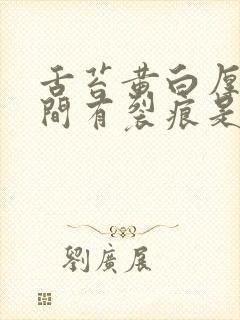 舌苔黄白厚
間有裂痕是
劉廣展